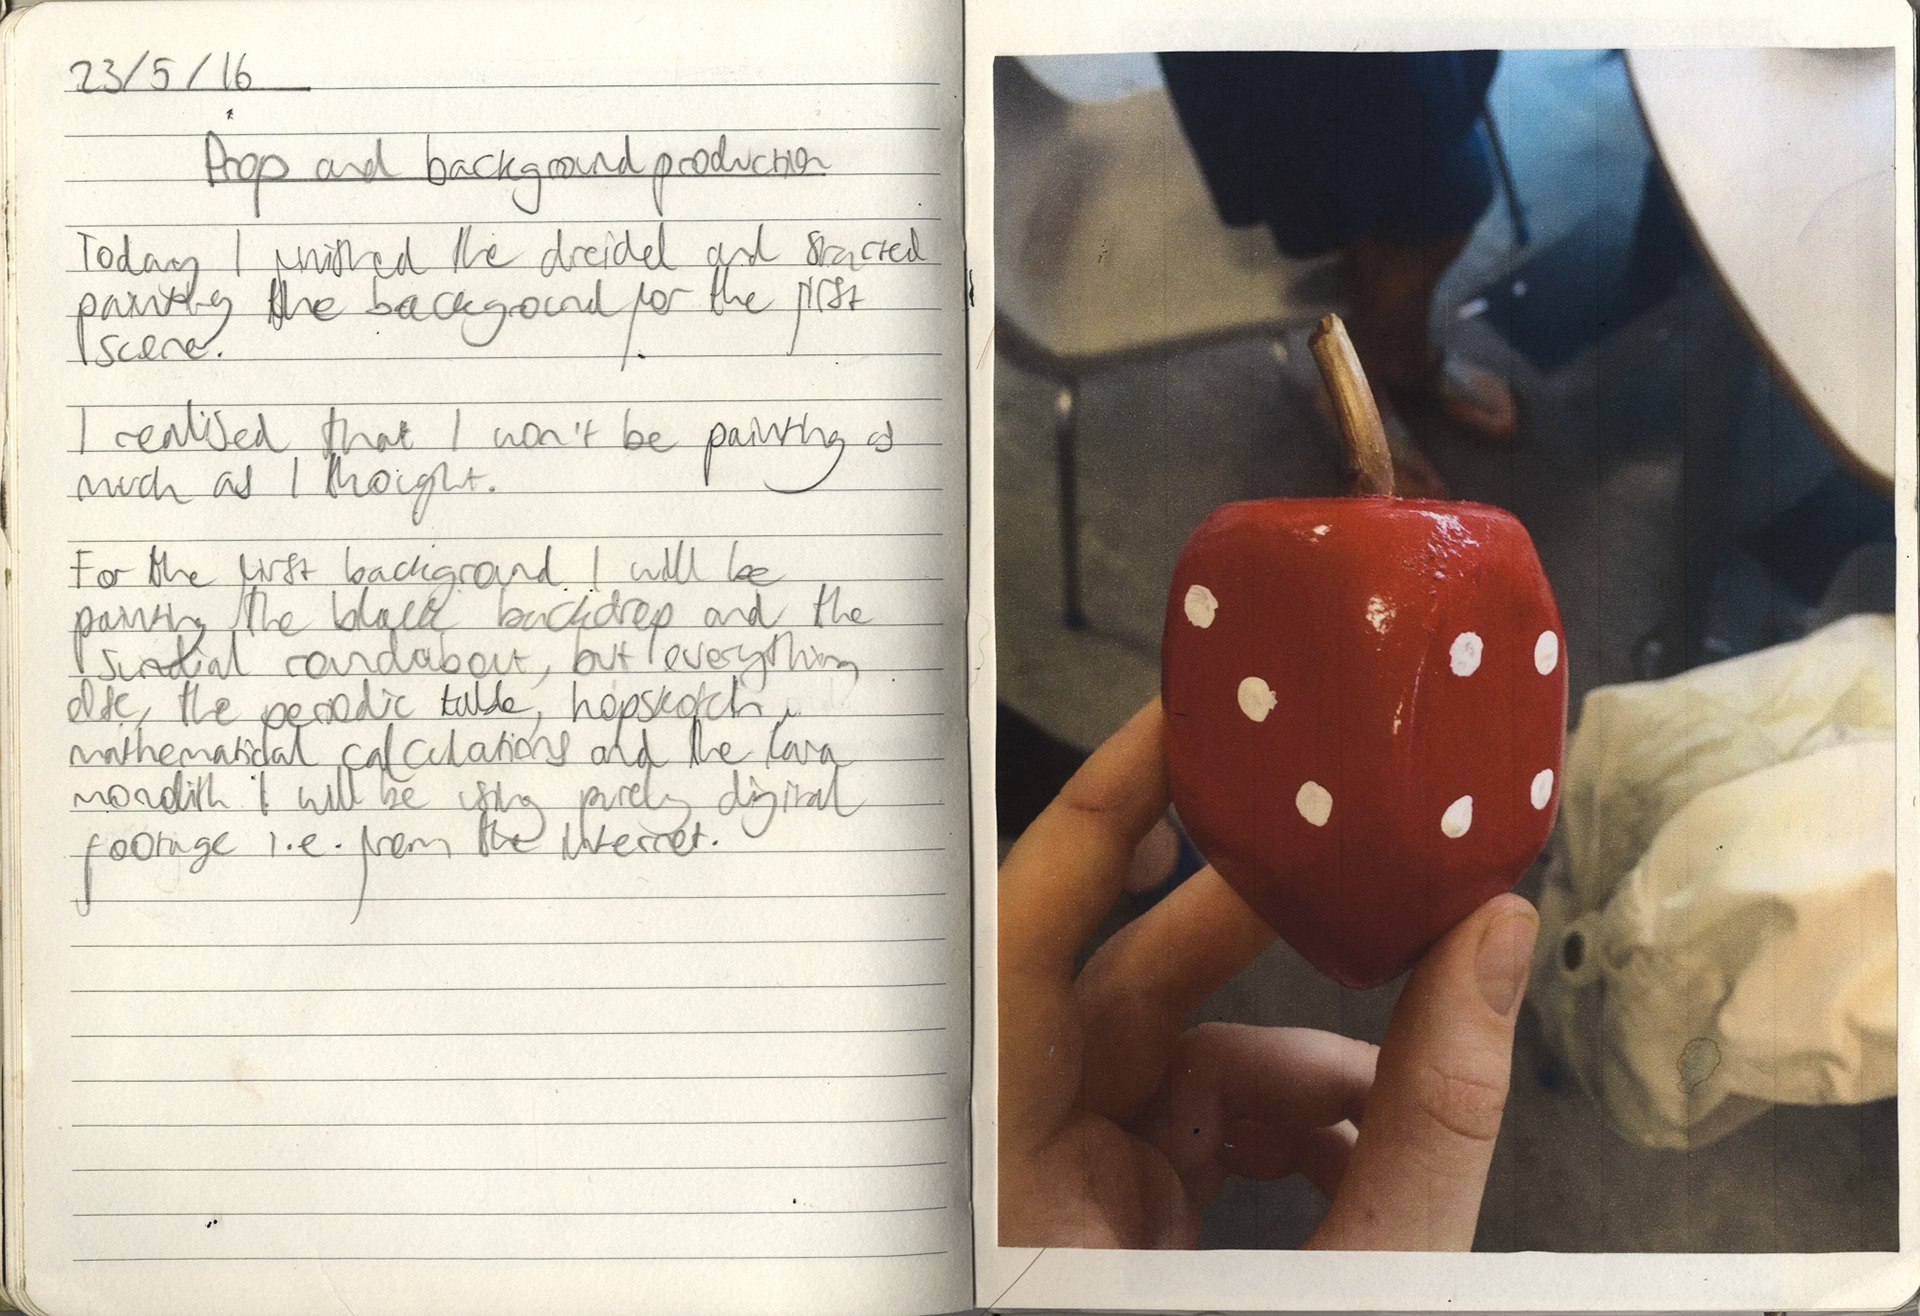 23/5/16
Prop and background production
Today I finished the dreidel and started
painting the background for the first
scene.
I realised that I won't be painting as
much as I thought.
For the first background I will be
painting the black backdrop and the
sundial roundabout, but everything
else, the periodic table, hopskotch,
mathematical calculations and the lava
monolith I will be using purely digital
footage i.e. from the internet.